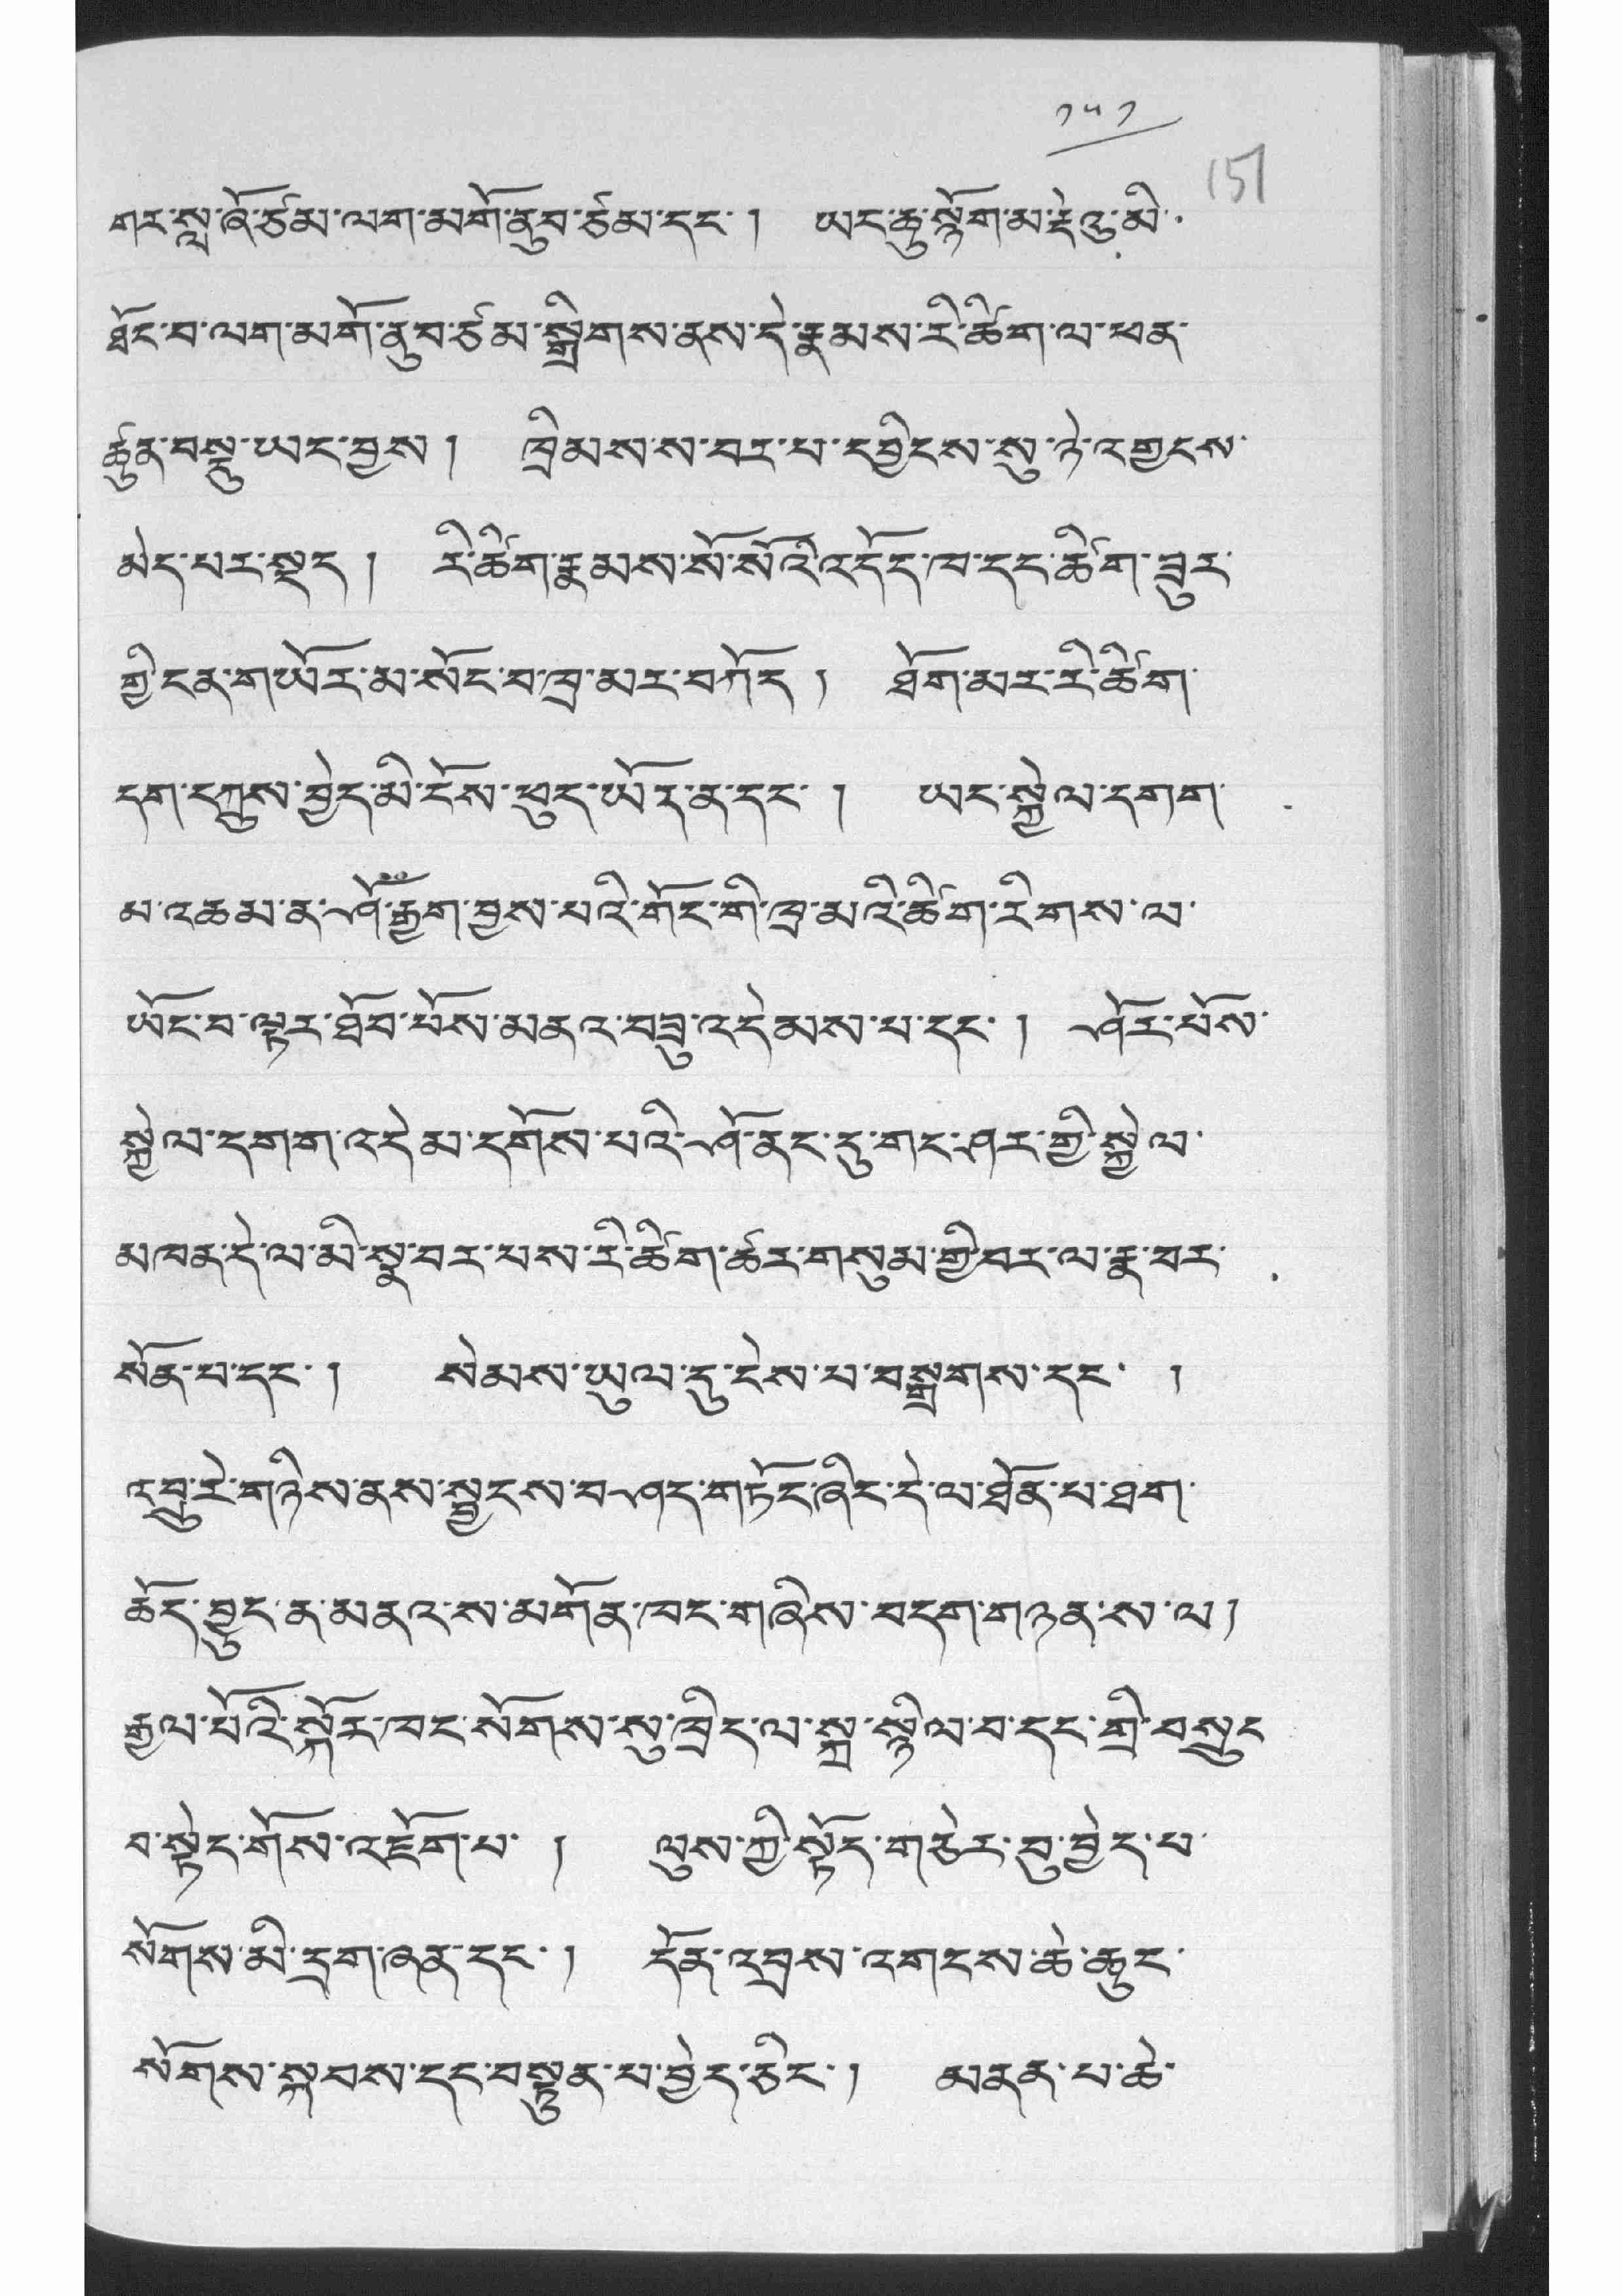 ༡༥༡
151
གར་སླ་ཞོ་ཙམ་ལག་མགོ་ནུབ་ཙམ་དང་། ཡང་ཆུ་སྙོག་མ་རྡེའུ་མི་
ཐོང་བ་ལག་མགོ་ནུབ་ཙམ་སྒྲིགས་ནས་དེ་རྣམས་རི་ཚིག་ལ་ཕན་
ཚུན་བསྡུ་ཡང་བྱས། ཁྲིམས་ས་བར་པ་དབྱིངས་སུ་ཉེ་འགྱངས་
མེད་པར་སྡད། རི་ཚིག་རྣམས་སོ་སོའི་འདོད་ཁ་དང་ཚིག་ཟུར་
གྱི་ངན་གཡོར་མ་སོང་བ་ཁྲ་མར་བཀོད། ཐོག་མར་རི་ཚིག་
དག་དཀྱུས་བྱེད་མི་ངོས་ཕུད་ཡོད་ན་དང་། ཡང་སྐྱེལ་དགག་
མ་འཆམ་ན་ཤོ་རྒྱག་བྱས་པའི་གོང་གི་ཁྲ་མའི་ཚིག་རིགས་ལ་
ཡོང་བ་ལྟར་ཐོབ་པོས་མནའ་བཟུ་འདེམས་པ་དང་། ཤོར་པོས་
སྐྱེལ་དགག་འདེམ་དགོས་པའི་ཤོ་ནང་དུ་གང་ཤར་གྱི་སྐྱེལ་
མཁན་དེ་ལ་མི་སྣ་བར་པས་རི་ཚིག་ཚར་གསུམ་གྱི་བར་ལ་རྣ་བར་
སོན་པ་དང་། སེམས་ཡུལ་དུ་ངེས་པ་བསྒྲགས་དང་ །
འབྲུ་རེ་གཉིས་ནས་སྦྱངས་བཤད་གཏོང་ཞིང་དེ་ལ་ཐོན་པ་ཐག་
ཆོད་བྱུང་ན་མནའ་ས་མགོན་ཁང་གཞིས་བདག་གཉན་ས་ལ།
རྒྱལ་པོའི་སྐོར་ཁང་སོགས་སུ་ཁྲིད་ལ་སྐྲ་སྙིལ་བ་དང་གྲི་བསྲུང
བ་སྟེང་གོས་འཇོག་པ་ ། ལུས་ཀྱི་སྟོད་གཅེར་བུ་བྱེད་པ་
སོགས་མི་དྲག་ཞན་དང་། དོན་འབྲས་འགངས་ཆེ་ཆུང་
སོགས་སྐབས་དང་བསྟུན་པ་བྱེད་ཅིང་། མནན་པ་ཆེ་